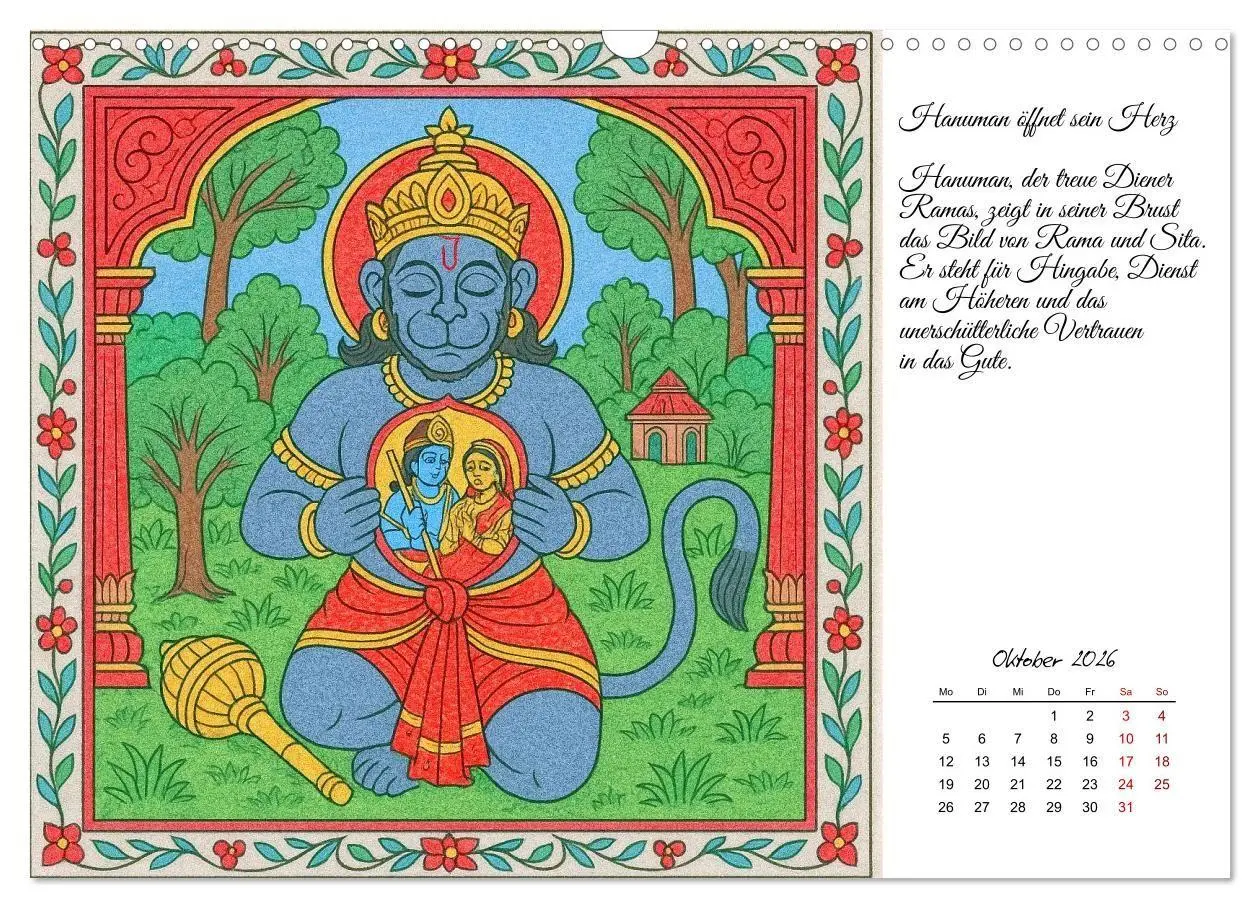 Hanuman öffnet sein Herz
Hanuman, der treue Diener
Ramas, zeigt in seiner Brust
das Bild von Rama und Sita.
Er steht für Hingabe, Dienst
am Höheren und das
unerschütterliche Vertrauen
in das Gute.
Oktober 2026
Mo Di Mi Do Fr Sa So
1 2 3 4
5 6 7 8 9 10 11
12 13 14 15 16 17 18
19 20 21 22 23 24 25
26 27 28 29 30 31